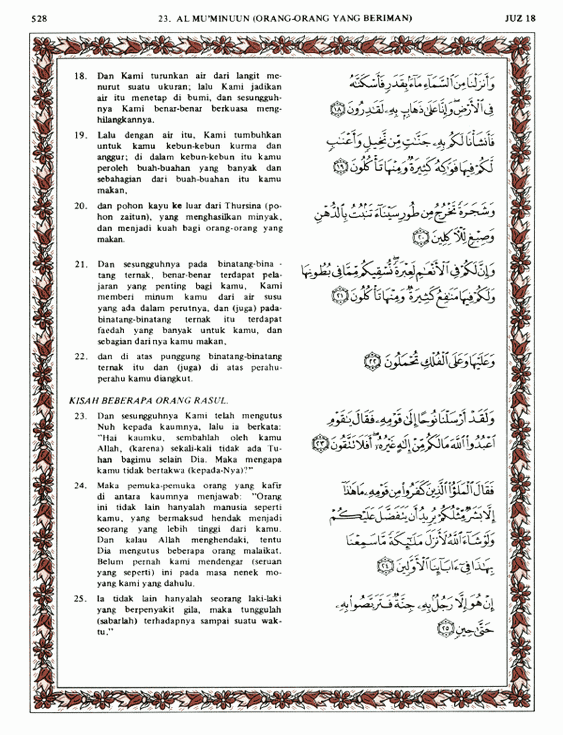 528
23. AL MU'MINUUN (ORANG-ORANG YANG BERIMAN)
JUZ 18
18. Dan Kami turunkan air dari langit me-
nurut suatu ukuran; lalu Kami jadikan
air itu menetap di bumi, dan sesungguh-
nya Kami benar-benar berkuasa meng-
hilangkannya.
وَأَنزَلْنَا مِنَ السَّمَاءِ مَاءً بِقَدَرٍ فَأَسْكَنَّاهُ
فِي الْأَرْضِ وَإِنَّا عَلَىٰ ذَهَابٍ بِهِ لَقَادِرُونَ ﴿١٨﴾
19. Lalu dengan air itu, Kami tumbuhkan
untuk kamu kebun-kebun kurma dan
anggur; di dalam kebun-kebun itu kamu
peroleh buah-buahan yang banyak dan
sebahagian dari buah-buahan itu kamu
makan,
فَأَنشَأْنَا لَكُم بِهِ جَنَّاتٍ مِّن نَّخِيلٍ وَأَعْنَابٍ
لَّكُمْ فِيهَا فَوَاكِهُ كَثِيرَةٌ وَمِنْهَا تَأْكُلُونَ ﴿١٩﴾
20. dan pohon kayu ke luar dari Thursina (po-
hon zaitun), yang menghasilkan minyak,
dan menjadi kuah bagi orang-orang yang
makan.
وَشَجَرَةً تَخْرُجُ مِن طُورِ سَيْنَاءَ تَنبُتُ بِالدُّهْنِ
وَصِبْغٍ لِّلْآكِلِينَ ﴿٢٠﴾
21. Dan sesungguhnya pada binatang-bina -
tang ternak, benar-benar terdapat pela-
jaran yang penting bagi kamu, Kami
memberi minum kamu dari air susu
yang ada dalam perutnya, dan (juga) pada-
binatang-binatang ternak itu terdapat
faedah yang banyak untuk kamu, dan
sebagian darinya kamu makan,
وَإِنَّ لَكُمْ فِي الْأَنْعَامِ لَعِبْرَةً نُّسْقِيكُم مِّمَّا فِي بُطُونِهَا
وَلَكُمْ فِيهَا مَنَافِعُ كَثِيرَةٌ وَمِنْهَا تَأْكُلُونَ ﴿٢١﴾
22. dan di atas punggung binatang-binatang
ternak itu dan (juga) di atas perahu-
perahu kamu diangkut.
وَعَلَيْهَا وَعَلَى الْفُلْكِ تُحْمَلُونَ ﴿٢٢﴾
KISAH BEBERAPA ORANG RASUL.
23. Dan sesungguhnya Kami telah mengutus
Nuh kepada kaumnya, lalu ia berkata:
"Hai kaumku, sembahlah oleh kamu
Allah, (karena) sekali-kali tidak ada Tu-
han bagimu selain Dia. Maka mengapa
kamu tidak bertakwa (kepada-Nya)?"
وَلَقَدْ أَرْسَلْنَا نُوحًا إِلَىٰ قَوْمِهِ فَقَالَ يَاقَوْمِ
اعْبُدُوا اللَّهَ مَا لَكُم مِّنْ إِلَٰهٍ غَيْرُهُ أَفَلَا تَتَّقُونَ ﴿٢٣﴾
24. Maka pemuka-pemuka orang yang kafir
di antara kaumnya menjawab: "Orang
ini tidak lain hanyalah manusia seperti
kamu, yang bermaksud hendak menjadi
seorang yang lebih tinggi dari kamu.
Dan kalau Allah menghendaki, tentu
Dia mengutus beberapa orang malaikat.
Belum pernah kami mendengar (seruan
yang seperti) ini pada masa nenek mo-
yang kami yang dahulu.
فَقَالَ الْمَلَؤُا الَّذِينَ كَفَرُوا مِن قَوْمِهِ مَا هَٰذَا
إِلَّا بَشَرٌ مِّثْلُكُمْ يُرِيدُ أَن يَتَفَضَّلَ عَلَيْكُمْ
وَلَوْ شَاءَ اللَّهُ لَأَنزَلَ مَلَائِكَةً مَّا سَمِعْنَا
بِهَٰذَا فِي آبَائِنَا الْأَوَّلِينَ ﴿٢٤﴾
25. Ia tidak lain hanyalah seorang laki-laki
yang berpenyakit gila, maka tunggulah
(sabarlah) terhadapnya sampai suatu wak-
tu."
إِنْ هُوَ إِلَّا رَجُلٌ بِهِ جِنَّةٌ فَتَرَبَّصُوا بِهِ
حَتَّىٰ حِينٍ ﴿٢٥﴾